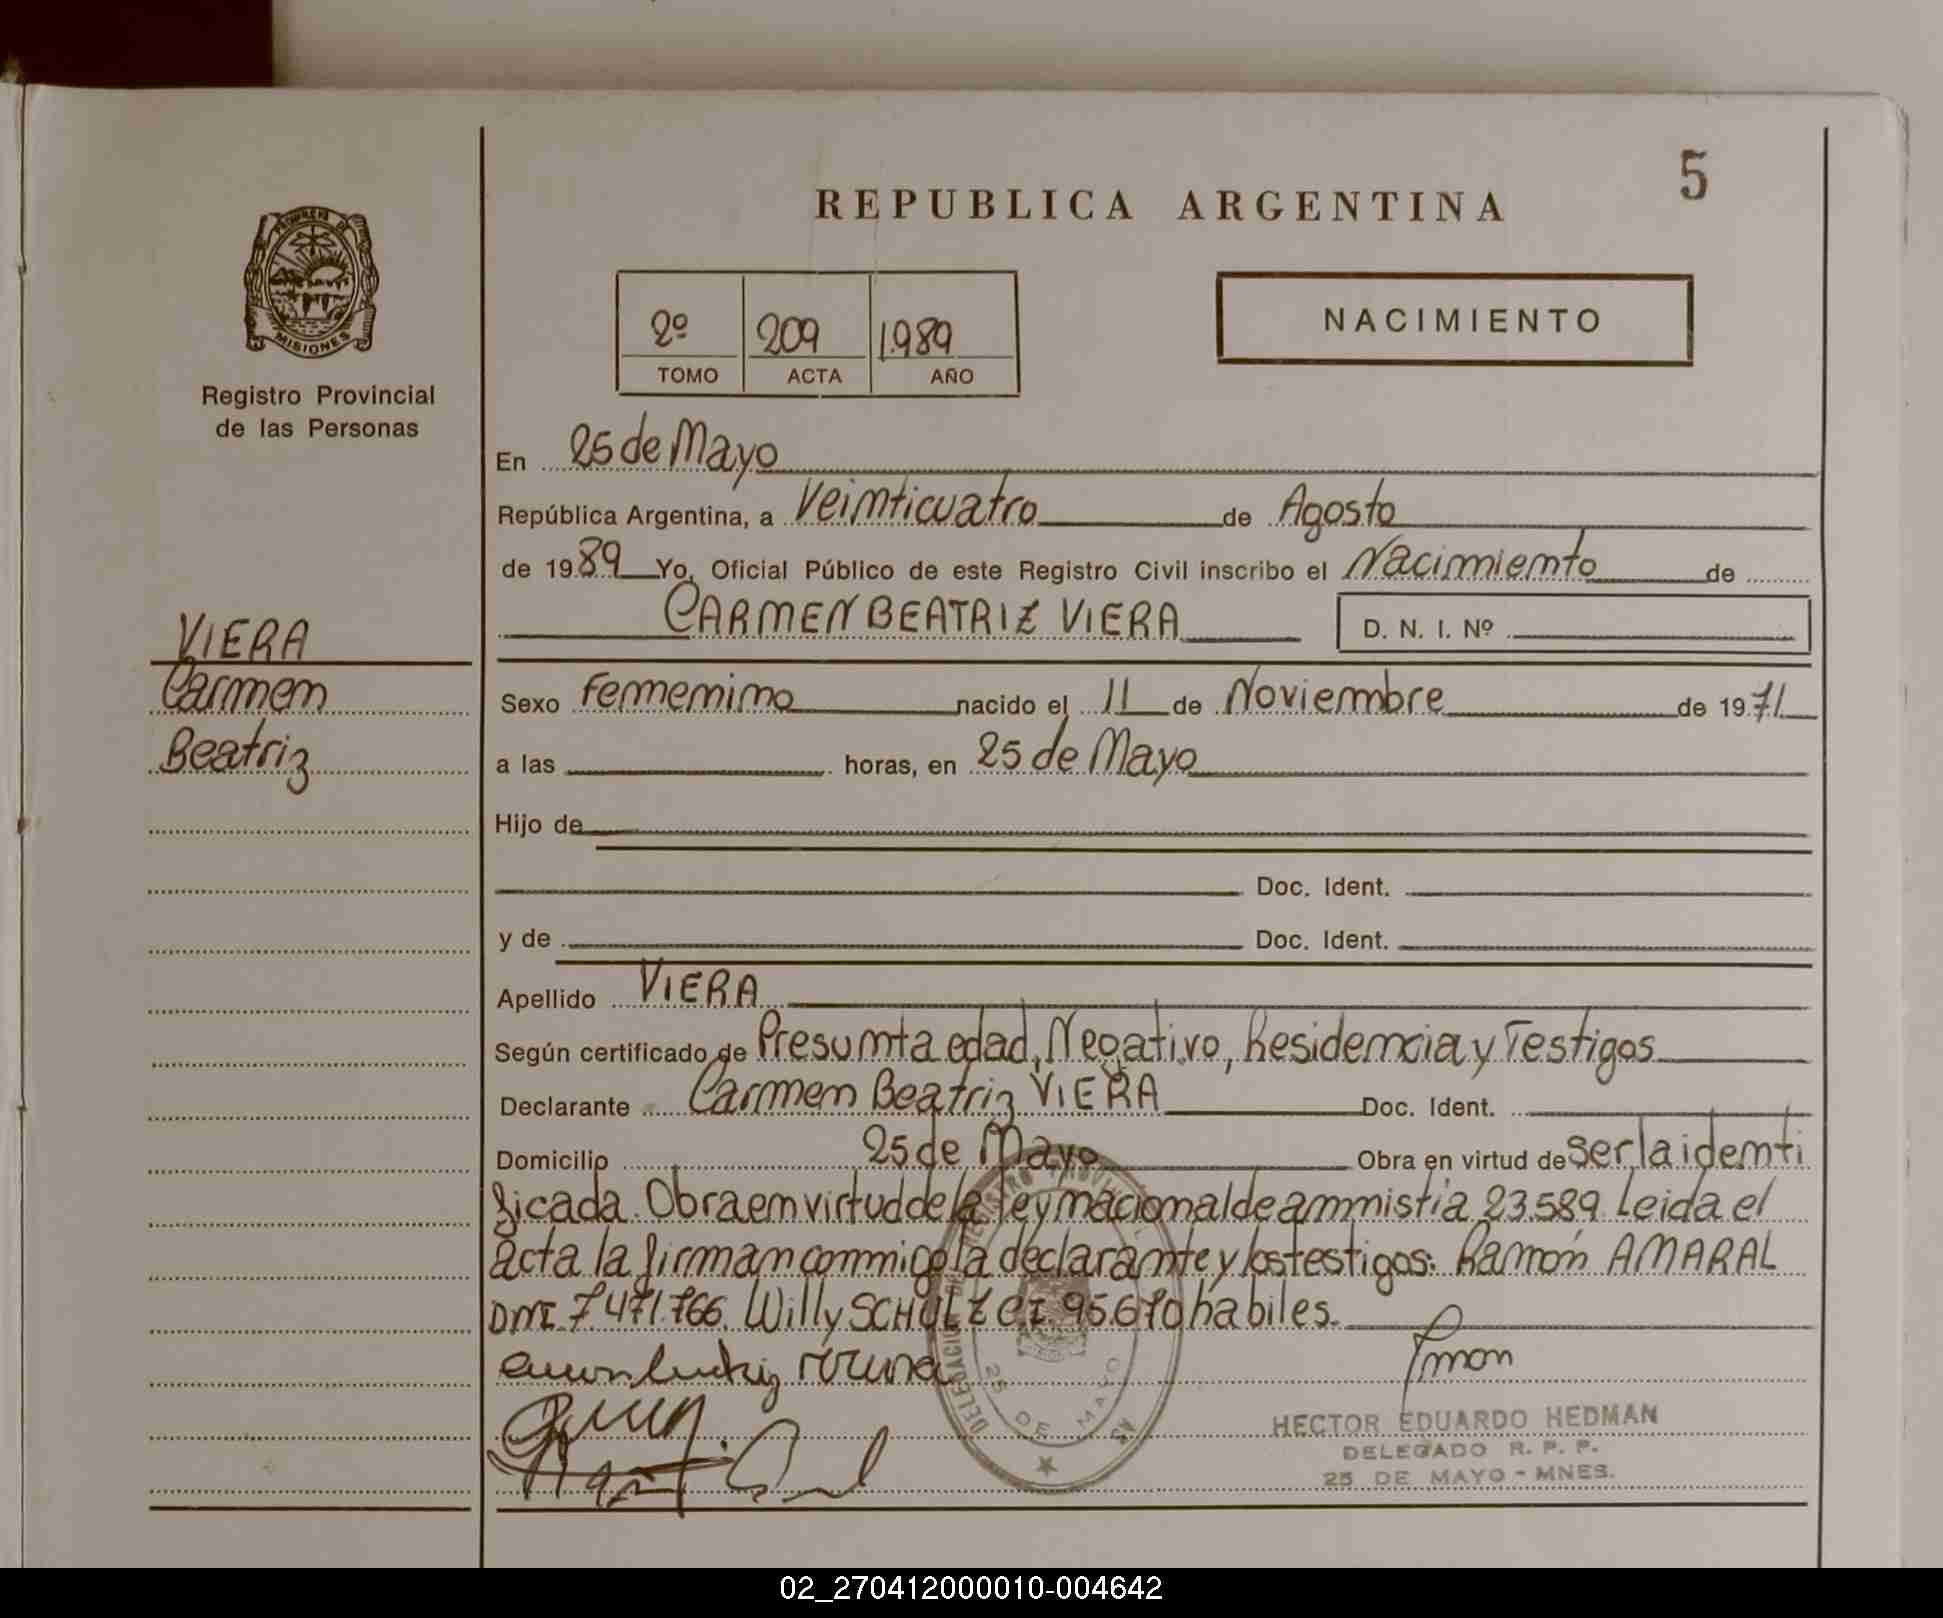 5
REPUBLICA ARGENTINA
PROVINCIA DE
MISIONES
Registro Provincial
de las Personas
2º 209 1.989
TOMO ACTA AÑO
NACIMIENTO
En 25 de Mayo
República Argentina, a Veinticuatro de Agosto
de 1989 Yo, Oficial Público de este Registro Civil inscribo el Nacimiento de
CARMEN BEATRIZ VIERA D. N. I. Nº
VIERA
Carmen
Beatriz
Sexo Femenino nacido el 11 de Noviembre de 1971
a las horas, en 25 de Mayo
Hijo de
Doc. Ident.
y de Doc. Ident.
Apellido VIERA
Según certificado de Presunta edad, Negativo, Residencia y Testigos
Declarante Carmen Beatriz VIERA Doc. Ident.
Domicilio 25 de Mayo Obra en virtud de ser la identi
ficada. Obra en virtud de la ley nacional de amnistia 23.589. Leida el
acta la firman conmigo la declarante y los testigos: Ramón AMARAL
DNI 7.471.766. Willy SCHULZ CI. 95.670 habiles.
DELEGACION DE REGISTRO PROVINCIAL
25 DE MAYO
HECTOR EDUARDO HEDMAN
DELEGADO R. P. P.
25 DE MAYO - MNES.
02_270412000010-004642